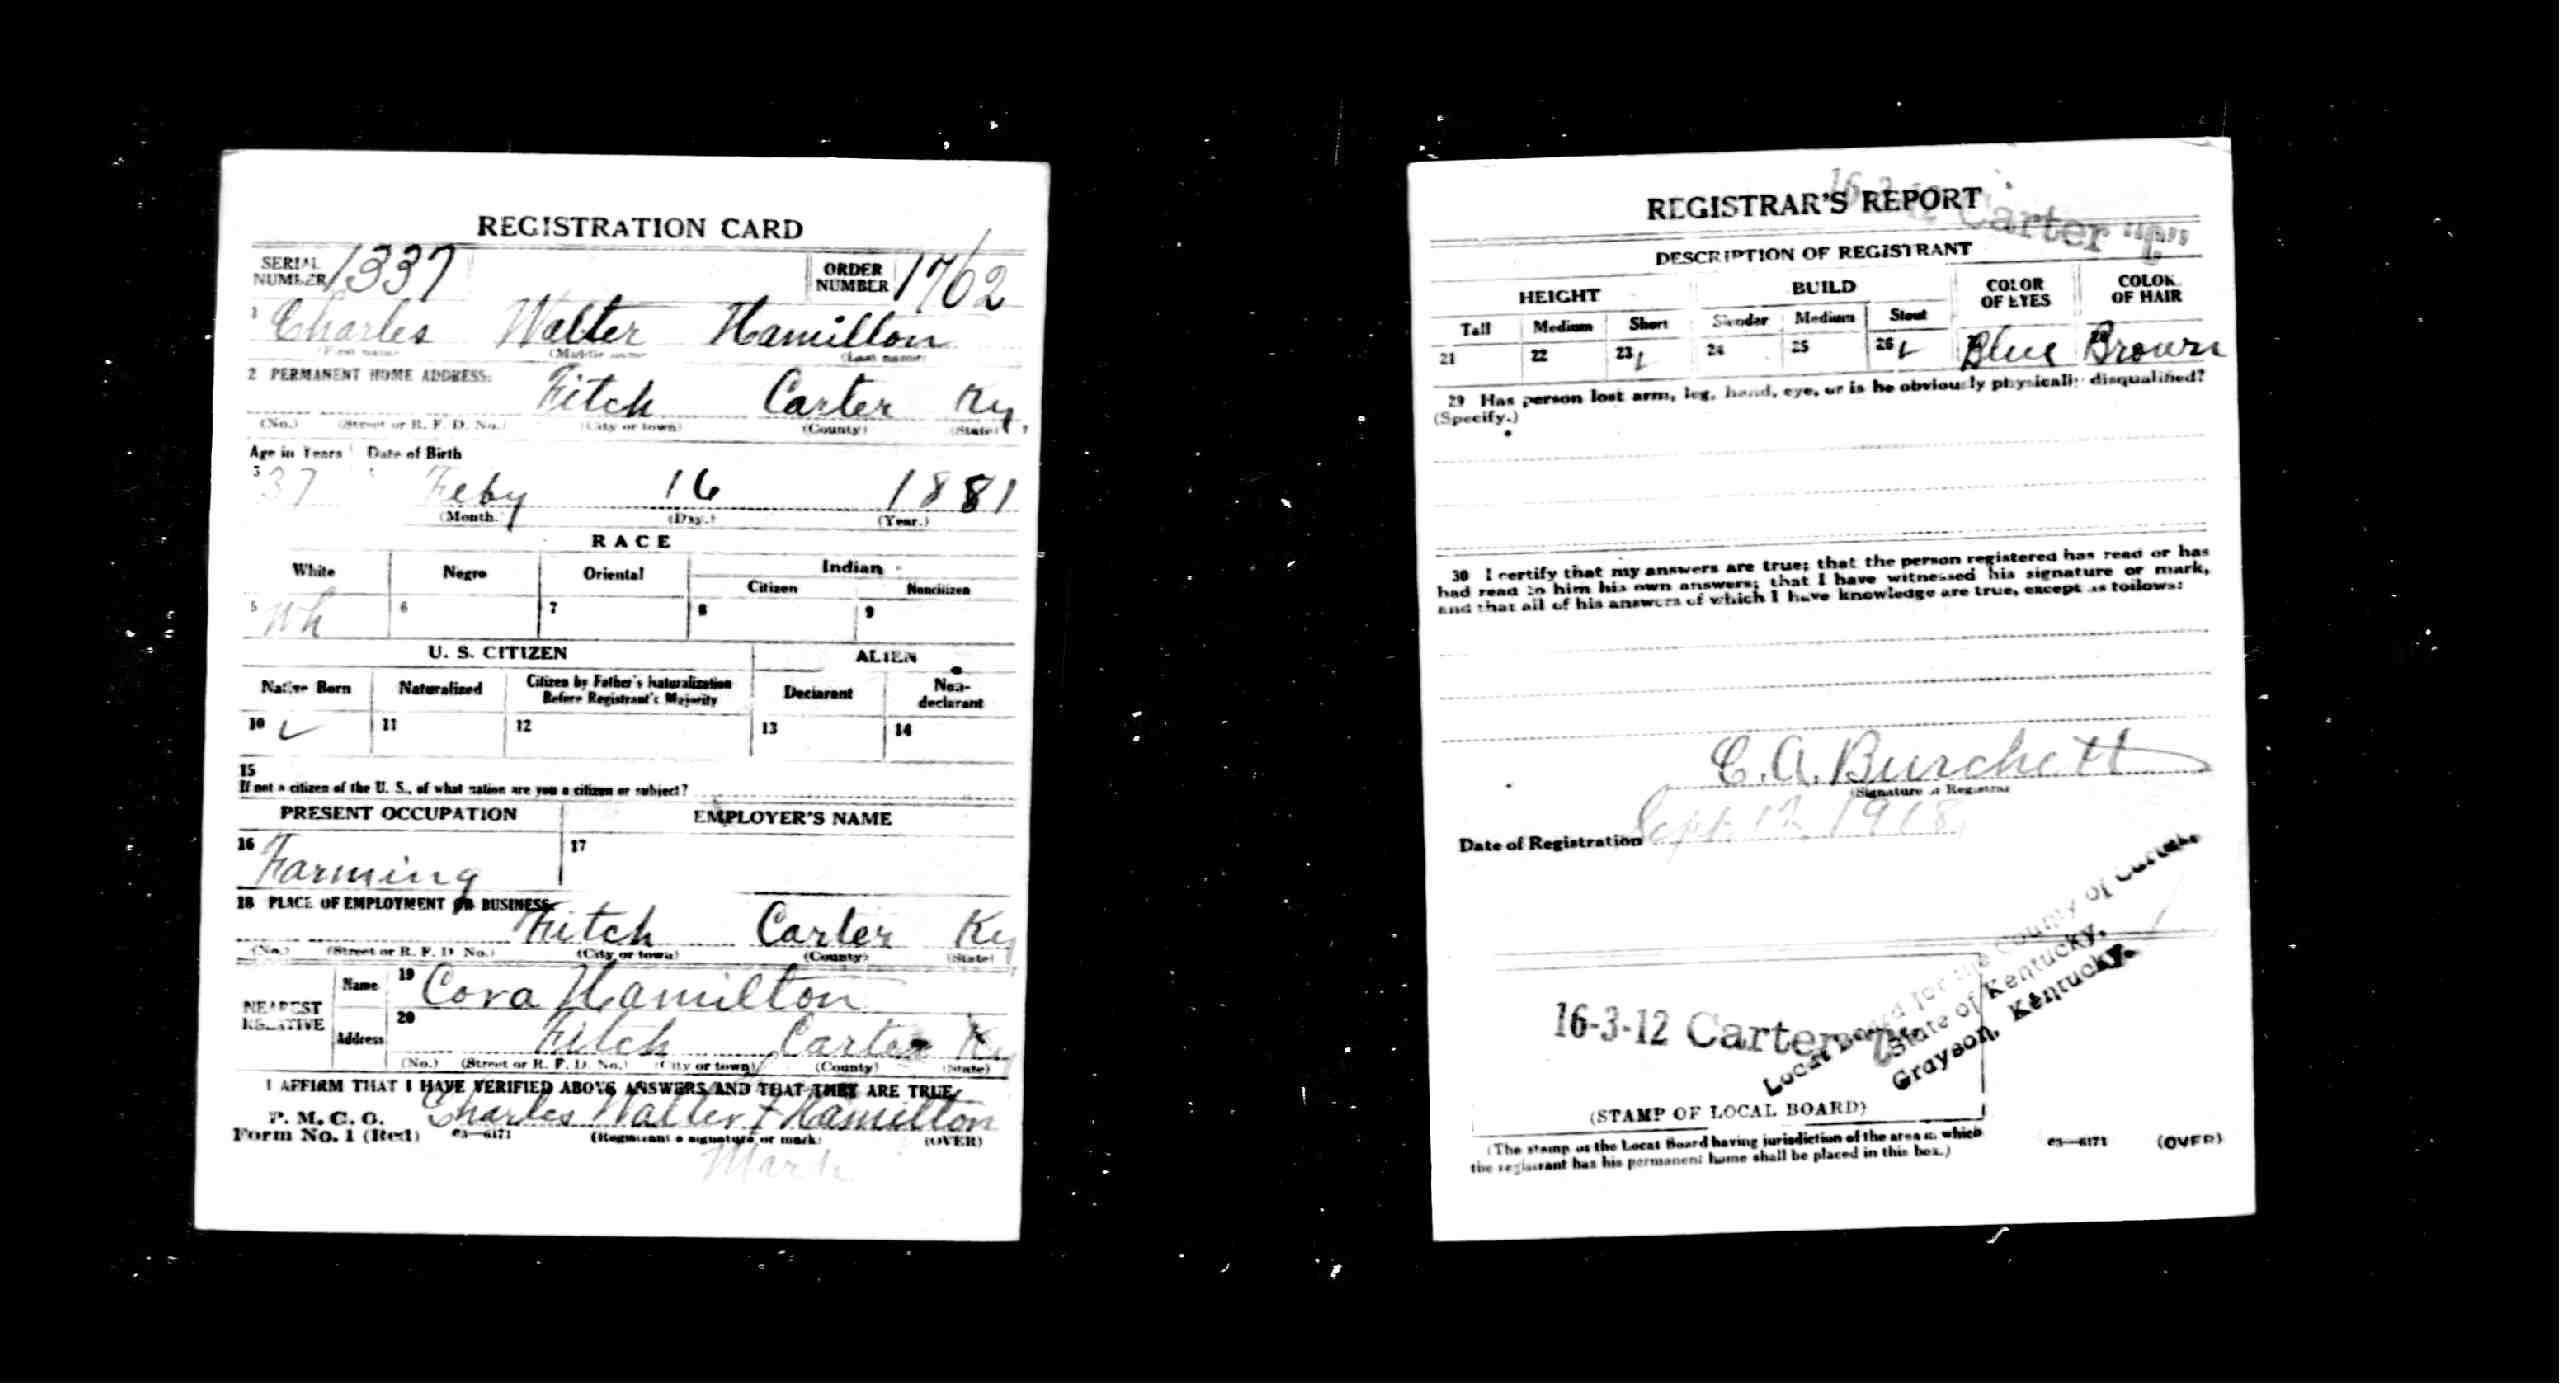 REGISTRATION CARD
SERIAL NUMBER 1337 ORDER NUMBER 1702
1 Charles Walter Hamilton
(First name) (Middle name) (Last name)
2 PERMANENT HOME ADDRESS:
Fitch Carter Ky
(No.) (Street or R. F. D. No.) (City or town) (County) (State)
Age in Years Date of Birth
3 37 Feby 16 1881
(Month.) (Day.) (Year.)
RACE
White Negro Oriental Indian
Citizen Noncitizen
5 Wh 6 7 8 9
U. S. CITIZEN ALIEN
Native Born Naturalized Citizen by Father's Naturalization Before Registrant's Majority Declarant Non-declarant
10 11 12 13 14
15
If not a citizen of the U. S., of what nation are you a citizen or subject?
PRESENT OCCUPATION EMPLOYER'S NAME
16 Farming 17
18 PLACE OF EMPLOYMENT OR BUSINESS:
Fitch Carter Ky
(No.) (Street or R. F. D. No.) (City or town) (County) (State)
NEAREST RELATIVE
Name 19 Cora Hamilton
Address 20 Fitch Carter Ky
(No.) (Street or R. F. D. No.) (City or town) (County) (State)
I AFFIRM THAT I HAVE VERIFIED ABOVE ANSWERS AND THAT THEY ARE TRUE
P. M. G. O.
Form No. 1 (Red) 03—6171 Charles Walter Hamilton
(Registrant's signature or mark) (OVER)
Mark
REGISTRAR'S REPORT
16-3-12 Carter
DESCRIPTION OF REGISTRANT
HEIGHT BUILD COLOR OF EYES COLOR OF HAIR
Tall Medium Short Slender Medium Stout
21 22 23 24 25 26 Blue Brown
29 Has person lost arm, leg, hand, eye, or is he obviously physically disqualified?
(Specify.)
30 I certify that my answers are true; that the person registered has read or has
had read to him his own answers; that I have witnessed his signature or mark,
and that all of his answers of which I have knowledge are true, except as follows:
C. A. Burchett
(Signature of Registrar)
Date of Registration Sept 12 1918
Local Board for the County of Carter
State of Kentucky,
Grayson, Kentucky.
16-3-12 Carter
(STAMP OF LOCAL BOARD)
(The stamp of the Local Board having jurisdiction of the area in which
the registrant has his permanent home shall be placed in this box.)
03—6171 (OVER)